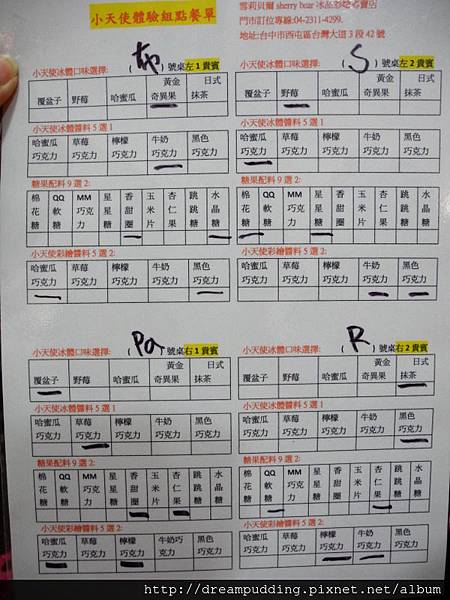 小天使體驗組點餐單
雪莉貝爾 sherry bear 冰品彩繪專賣店
門市訂位專線:04-2311-4299.
地址:台中市西屯區台灣大道 3 段 42 號
小天使冰體口味選擇: ( 布 )號桌左1貴賓
覆盆子 野莓 哈蜜瓜 黃金奇異果 日式抹茶
小天使冰體醬料 5 選 1
哈蜜瓜巧克力 草莓巧克力 檸檬巧克力 牛奶巧克力 黑色巧克力
糖果配料 9 選 2:
棉花糖 QQ軟糖 MM巧克力 星星糖 香甜圈 玉米片 杏仁果 跳跳糖 水晶糖
小天使彩繪醬料 5 選 2:
哈蜜瓜巧克力 草莓巧克力 檸檬巧克力 牛奶巧克力 黑色巧克力
小天使冰體口味選擇: ( S )號桌左2貴賓
覆盆子 野莓 哈蜜瓜 黃金奇異果 日式抹茶
小天使冰體醬料 5 選 1
哈蜜瓜巧克力 草莓巧克力 檸檬巧克力 牛奶巧克力 黑色巧克力
糖果配料 9 選 2:
棉花糖 QQ軟糖 MM巧克力 星星糖 香甜圈 玉米片 杏仁果 跳跳糖 水晶糖
小天使彩繪醬料 5 選 2:
哈蜜瓜巧克力 草莓巧克力 檸檬巧克力 牛奶巧克力 黑色巧克力
小天使冰體口味選擇: ( Pa )號桌右1貴賓
覆盆子 野莓 哈蜜瓜 黃金奇異果 日式抹茶
小天使冰體醬料 5 選 1
哈蜜瓜巧克力 草莓巧克力 檸檬巧克力 牛奶巧克力 黑色巧克力
糖果配料 9 選 2:
棉花糖 QQ軟糖 MM巧克力 星星糖 香甜圈 玉米片 杏仁果 跳跳糖 水晶糖
小天使彩繪醬料 5 選 2:
哈蜜瓜巧克力 草莓巧克力 檸檬巧克力 牛奶巧克力 黑色巧克力
小天使冰體口味選擇: ( R )號桌右2貴賓
覆盆子 野莓 哈蜜瓜 黃金奇異果 日式抹茶
小天使冰體醬料 5 選 1
哈蜜瓜巧克力 草莓巧克力 檸檬巧克力 牛奶巧克力 黑色巧克力
糖果配料 9 選 2:
棉花糖 QQ軟糖 MM巧克力 星星糖 香甜圈 玉米片 杏仁果 跳跳糖 水晶糖
小天使彩繪醬料 5 選 2:
哈蜜瓜巧克力 草莓巧克力 檸檬巧克力 牛奶巧克力 黑色巧克力
http://dreampudding.pixnet.net/album